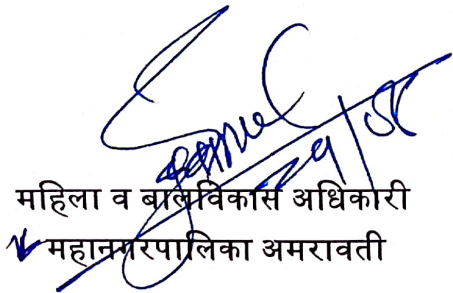 29/05
महिला व बालविकास अधिकारी
महानगरपालिका अमरावती